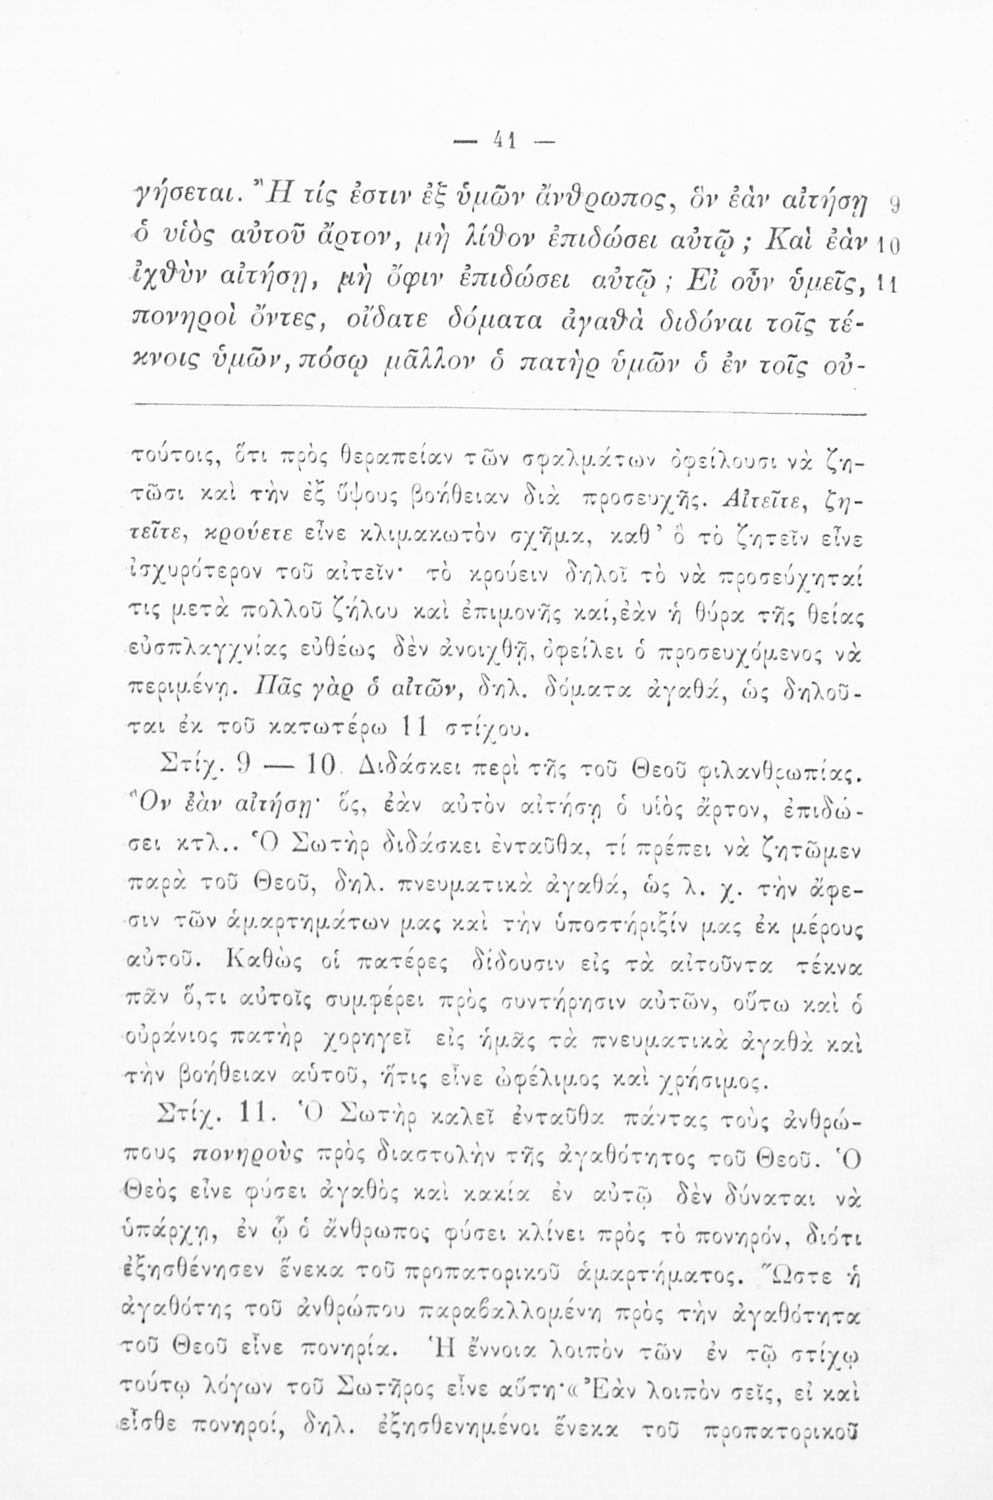 — 41 —
γήσεται. Ἢ τίς ἐστιν ἐξ ὑμῶν ἄνθρωπος, ὃν ἐὰν αἰτήσῃ 9
ὁ υἱὸς αὐτοῦ ἄρτον, μὴ λίθον ἐπιδώσει αὐτῷ; Καὶ ἐὰν 10
ἰχθὺν αἰτήσῃ, μὴ ὄφιν ἐπιδώσει αὐτῷ; Εἰ οὖν ὑμεῖς, 11
πονηροὶ ὄντες, οἴδατε δόματα ἀγαθὰ διδόναι τοῖς τέ-
κνοις ὑμῶν, πόσῳ μᾶλλον ὁ πατὴρ ὑμῶν ὁ ἐν τοῖς οὐ-
τούτοις, ὅτι πρὸς θεραπείαν τῶν σφαλμάτων ὀφείλουσι νὰ ζη-
τῶσι καὶ τὴν ἐξ ὕψους βοήθειαν διὰ προσευχῆς. Αἰτεῖτε, ζη-
τεῖτε, κρούετε εἶνε κλιμακωτὸν σχῆμα, καθ’ ὃ τὸ ζητεῖν εἶνε
ἰσχυρότερον τοῦ αἰτεῖν· τὸ κρούειν δηλοῖ τὸ νὰ προσεύχηταί
τις μετὰ πολλοῦ ζήλου καὶ ἐπιμονῆς καί, ἐὰν ἡ θύρα τῆς θείας
εὐσπλαγχνίας εὐθέως δὲν ἀνοιχθῇ, ὀφείλει ὁ προσευχόμενος νὰ
περιμένῃ. Πᾶς γὰρ ὁ αἰτῶν, δηλ. δόματα ἀγαθά, ὡς δηλοῦ-
ται ἐκ τοῦ κατωτέρω 11 στίχου.
Στίχ. 9 — 10. Διδάσκει περὶ τῆς τοῦ Θεοῦ φιλανθρωπίας.
Ὃν ἐὰν αἰτήσῃ· ὅς, ἐὰν αὐτὸν αἰτήσῃ ὁ υἱὸς ἄρτον, ἐπιδώ-
σει κτλ.. Ὁ Σωτὴρ διδάσκει ἐνταῦθα, τί πρέπει νὰ ζητῶμεν
παρὰ τοῦ Θεοῦ, δηλ. πνευματικὰ ἀγαθά, ὡς λ. χ. τὴν ἄφε-
σιν τῶν ἁμαρτημάτων μας καὶ τὴν ὑποστήριξίν μας ἐκ μέρους
αὐτοῦ. Καθὼς οἱ πατέρες δίδουσιν εἰς τὰ αἰτοῦντα τέκνα
πᾶν ὅ,τι αὐτοῖς συμφέρει πρὸς συντήρησιν αὐτῶν, οὕτω καὶ ὁ
οὐράνιος πατὴρ χορηγεῖ εἰς ἡμᾶς τὰ πνευματικὰ ἀγαθὰ καὶ
τὴν βοήθειαν αὑτοῦ, ἥτις εἶνε ὠφέλιμος καὶ χρήσιμος.
Στίχ. 11. Ὁ Σωτὴρ καλεῖ ἐνταῦθα πάντας τοὺς ἀνθρώ-
πους πονηροὺς πρὸς διαστολὴν τῆς ἀγαθότητος τοῦ Θεοῦ. Ὁ
Θεὸς εἶνε φύσει ἀγαθὸς καὶ κακία ἐν αὐτῷ δὲν δύναται νὰ
ὑπάρχῃ, ἐν ᾧ ὁ ἄνθρωπος φύσει κλίνει πρὸς τὸ πονηρόν, διότι
ἐξησθένησεν ἕνεκα τοῦ προπατορικοῦ ἁμαρτήματος. Ὥστε ἡ
ἀγαθότης τοῦ ἀνθρώπου παραβαλλομένη πρὸς τὴν ἀγαθότητα
τοῦ Θεοῦ εἶνε πονηρία. Ἡ ἔννοια λοιπὸν τῶν ἐν τῷ στίχῳ
τούτῳ λόγων τοῦ Σωτῆρος εἶνε αὕτη·«Ἐὰν λοιπὸν σεῖς, εἰ καὶ
εἶσθε πονηροί, δηλ. ἐξησθενημένοι ἕνεκα τοῦ προπατορικοῦ